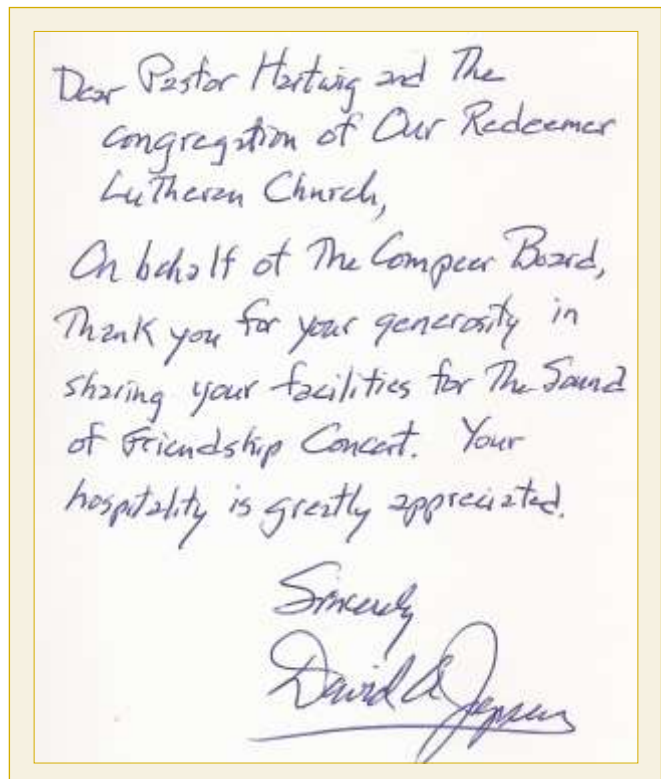 Dear Pastor Hartwig and The
congregation of Our Redeemer
Lutheran Church,
On behalf of The Compeer Board,
Thank you for your generosity in
sharing your facilities for The Sound
of Friendship Concert. Your
hospitality is greatly appreciated.
Sincerely
David A